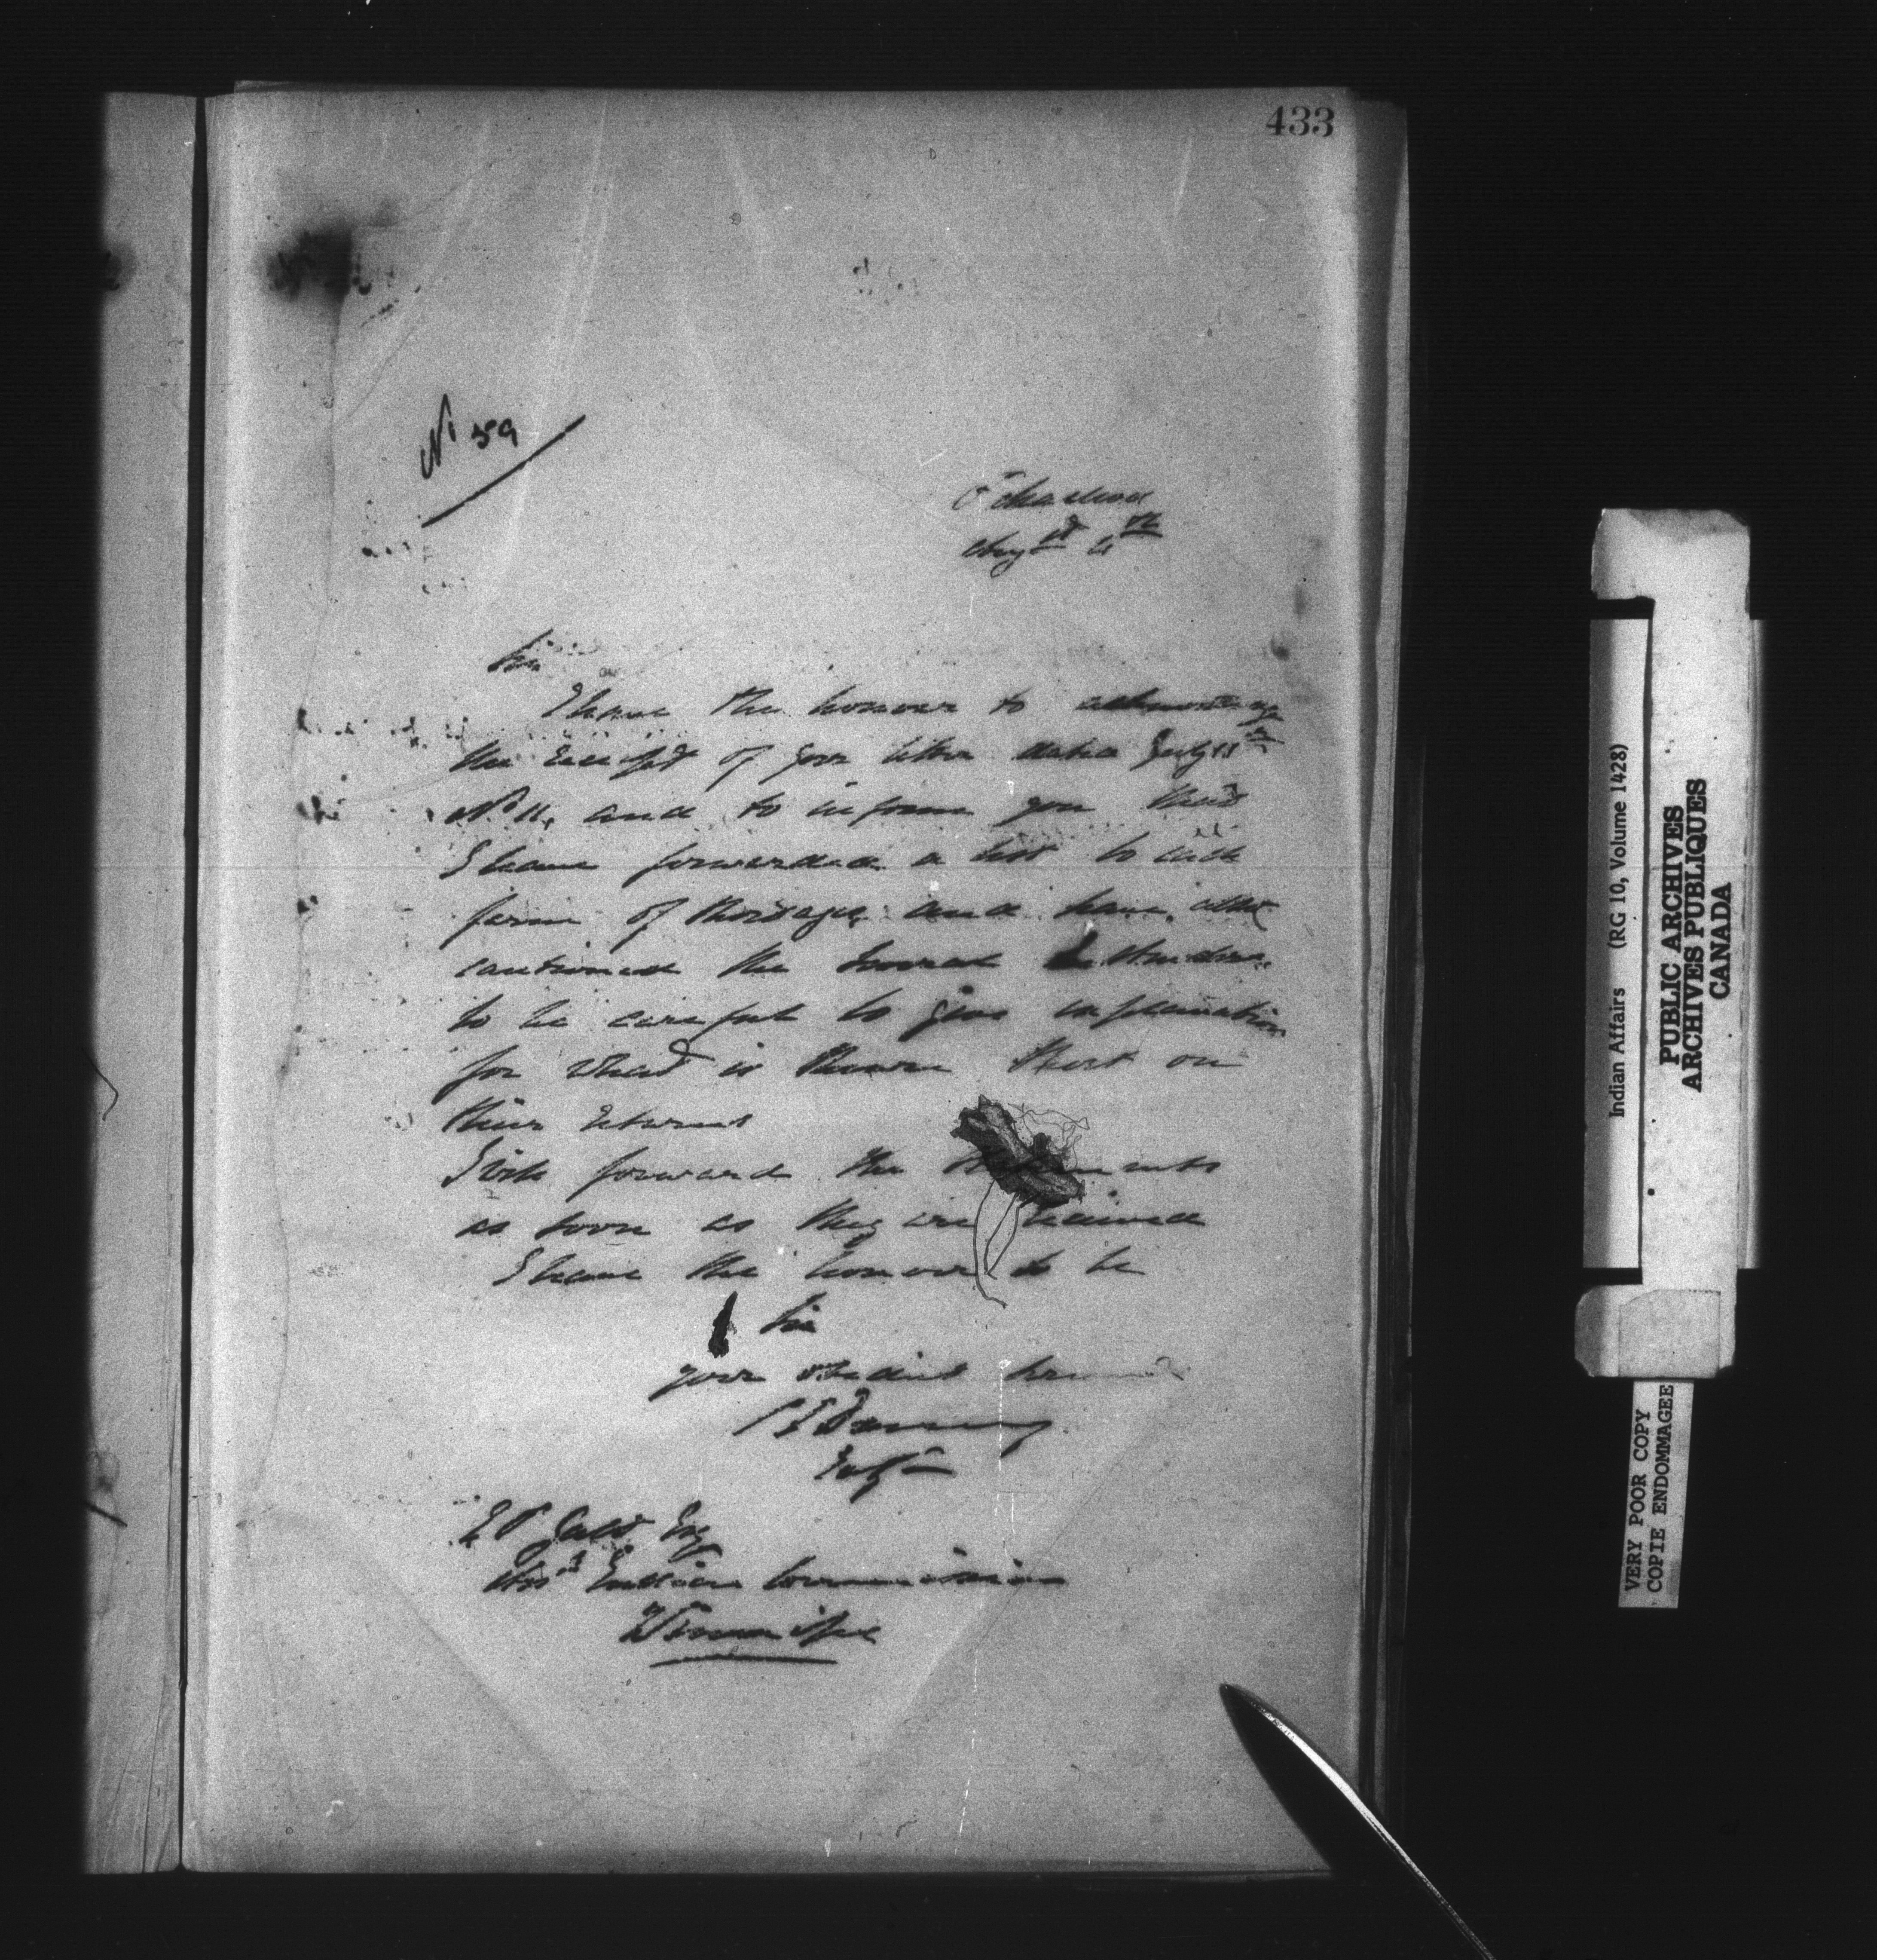 433
No 59
Augst 4th
Sir
I have the honour to acknowledge
the receipt of your letter dated July 11th
No 11, and to inform you that
I have forwarded a list to each
farm of shortages and have also
cautioned the several Instructors
to be careful to give explanation
for what is shown short on
their returns
I will forward the statements
as soon as they are received
I have the honour to be
Sir
your obedient servant
Esq
Asst Indian Commissioner
Winnipeg
Indian Affairs (RG 10, Volume 1428)
PUBLIC ARCHIVES
ARCHIVES PUBLIQUES
CANADA
VERY POOR COPY
COPIE ENDOMMAGEE